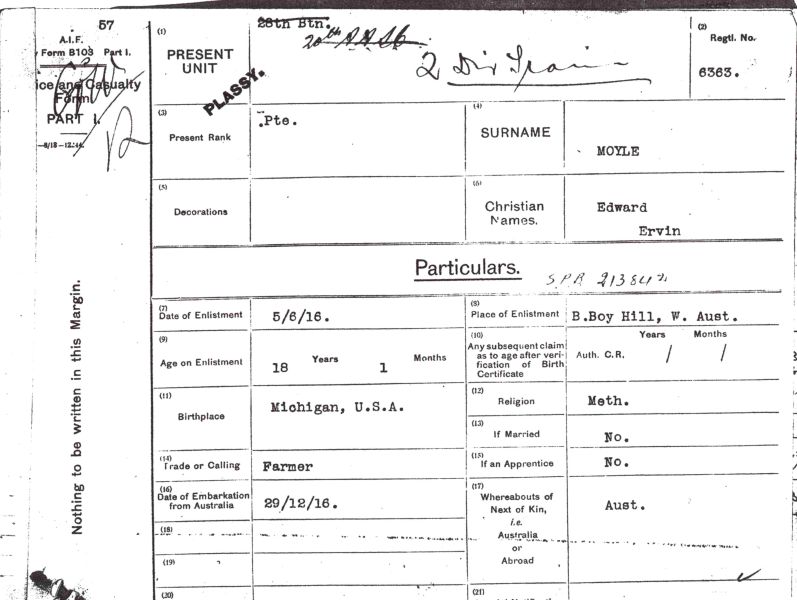 57
A.I.F.
Form B103 Part I.
ice and Casualty
Form
PART I.
(1)
PRESENT
UNIT
28th Btn.
2 Div Train
PLASSY.
(2)
Regtl. No.
6363.
(3)
Present Rank
Pte.
(4)
SURNAME
MOYLE
(5)
Decorations
(6)
Christian
Names.
Edward
Ervin
Particulars.
(7)
Date of Enlistment
5/6/16.
(8)
Place of Enlistment
B.Boy Hill, W. Aust.
(9)
Age on Enlistment
18 Years 1 Months
(10)
Any subsequent claim
as to age after veri-
fication of Birth
Certificate
Years Months
Auth. C.R. / /
(11)
Birthplace
Michigan, U.S.A.
(12)
Religion
Meth.
(13)
If Married
No.
(14)
Trade or Calling
Farmer
(15)
If an Apprentice
No.
(16)
Date of Embarkation
from Australia
29/12/16.
(17)
Whereabouts of
Next of Kin,
i.e.
Australia
or
Abroad
Aust.
(18)
(19)
(20)
(21)
Nothing to be written in this Margin.